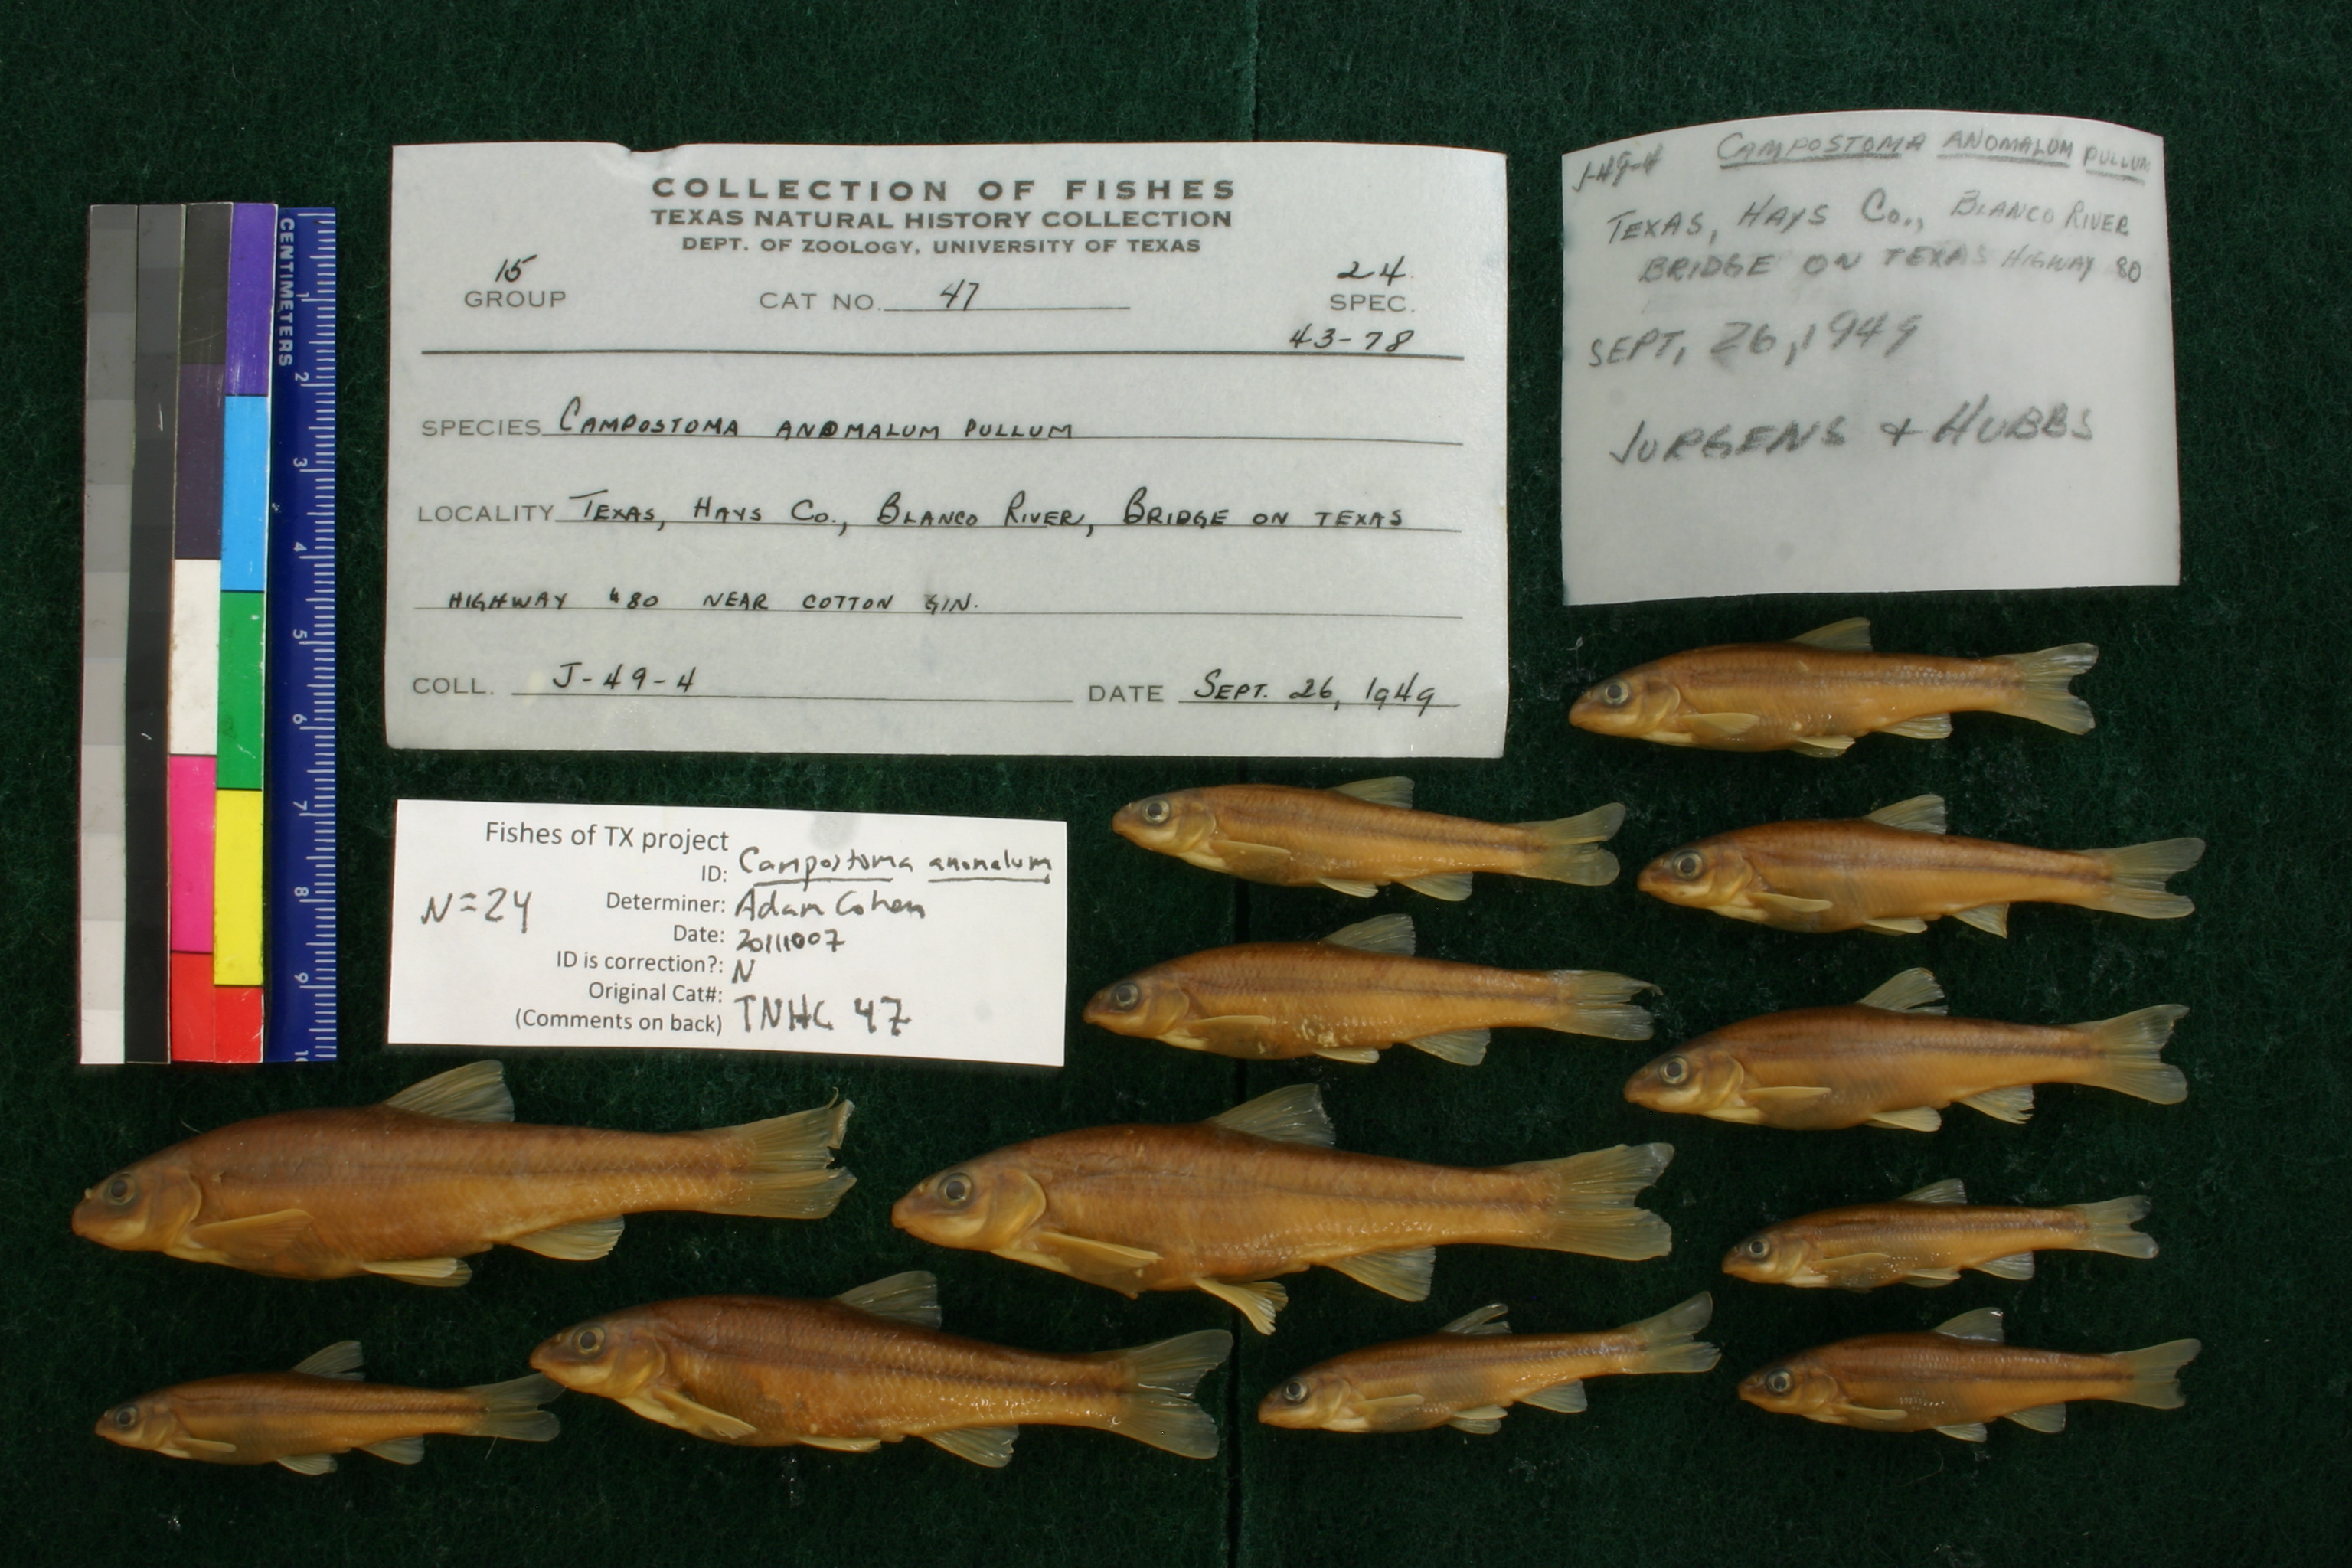 COLLECTION OF FISHES
TEXAS NATURAL HISTORY COLLECTION
DEPT. OF ZOOLOGY, UNIVERSITY OF TEXAS
15 24
GROUP CAT NO. 47 SPEC.
43-78
SPECIES CAMPOSTOMA ANOMALUM PULLUM
LOCALITY TEXAS, HAYS CO., BLANCO RIVER, BRIDGE ON TEXAS
HIGHWAY #80 NEAR COTTON GIN.
COLL. J-49-4 DATE SEPT. 26, 1949
J-49-4 CAMPOSTOMA ANOMALUM PULLUM
TEXAS, HAYS CO., BLANCO RIVER
BRIDGE ON TEXAS HIGWAY 80
SEPT, 26, 1949
JURGENS + HUBBS
CENTIMETERS
1
2
3
4
5
6
7
8
9
10
Fishes of TX project
ID: Campostoma anomalum
N=24 Determiner: Adam Cohen
Date: 20111007
ID is correction?: N
Original Cat#: TNHC 47
(Comments on back)